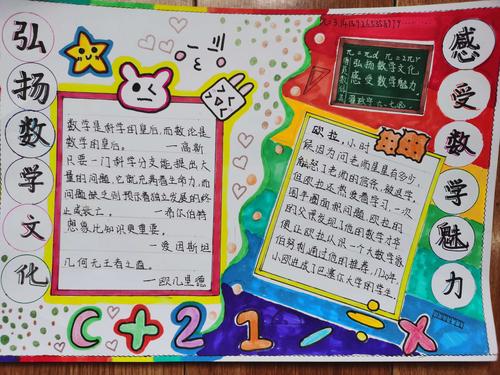 弘扬数学文化
数学是科学的皇后,而数论是
数学的皇后。 —高斯
只要一门科学分支能提出大
量的问题,它就充满着生命力,而
问题缺乏则预示着独立发展的终
止或衰亡。 —希尔伯特
想象比知识更重要。
—爱因斯坦
几何无王者之道。
—欧几里德
弘扬数学文化
感受数学魅力
欧拉,小时
候因为问老师星星有多少
触怒了老师的信条,被退学,
但欧拉还热爱看学习,一次
因羊圈面积问题,欧拉的
的父亲发现了他的数学才华
便让欧拉认识一个大数学家
伯努利,通过他的推荐,
小欧进成了巴塞尔大学的学生。
感受数学魅力
C+21